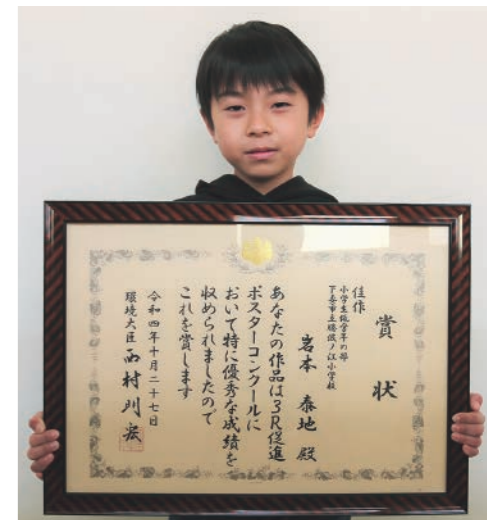 賞状
佳作
小学生低学年の部
下呂市立勝波ノ江小学校
岩本 泰地 殿
あなたの作品は3R促進
ポスターコンクールに
おいて特に優秀な成績を
収められましたので
これを賞します
令和四年十月二十七日
環境大臣 西村明宏